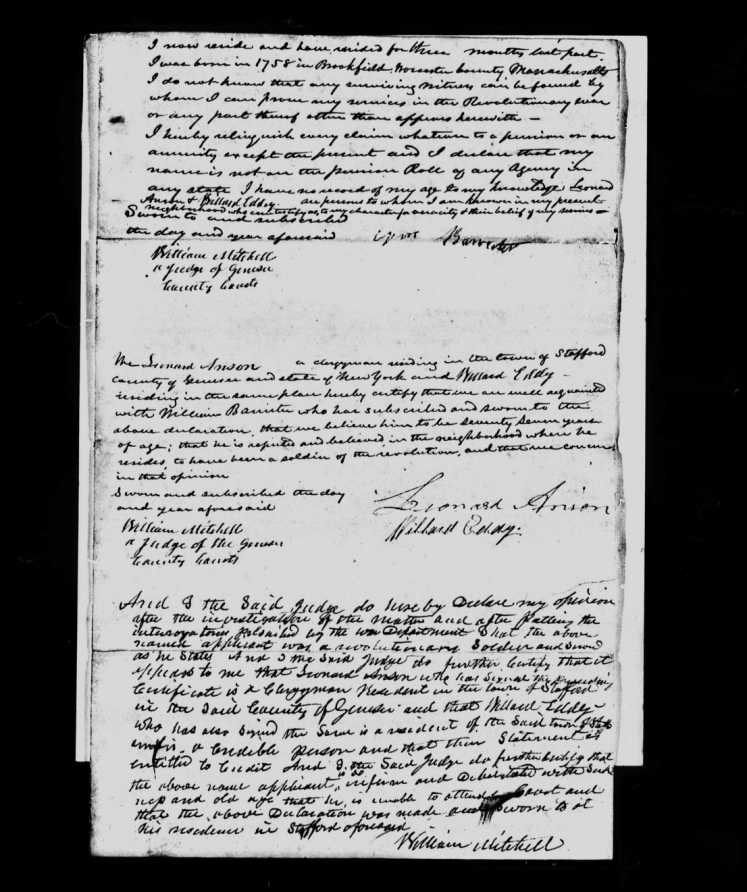 I now reside and have resided for three months last past.
I was born in 1758 in Brookfield, Worcester County Massachusetts
I do not know that any surviving witness can be found by
whom I can prove my services in the Revolutionary war
or any part thereof other than appears herewith –
I hereby relinquish every claim whatever to a pension or an
annuity except the present and I declare that my
name is not on the pension Roll of any Agency in
any state I have no record of my age to my knowledge Leonard
Anson & Willard Eddy are persons to whom I am known in my present
neighborhood who can testify as to my character for veracity & their belief of my services –
Sworn to and subscribed
the day and year aforesaid
William Mitchell
a Judge of Genesee
County Courts
We Leonard Anson a clergyman residing in the town of Stafford
County of Genesee and state of New York and Willard Eddy –
residing in the same place hereby certify that we are well acquainted
with William Banister who has subscribed and sworn to the
above declaration, that we believe him to be seventy seven years
of age; that he is reputed and believed in the neighborhood where he
resides, to have been a soldier of the revolution, and that we concur
in that opinion
Sworn and subscribed the day
and year aforesaid
Leonard Anson
Willard Eddy.
William Mitchell
a Judge of the Genesee
County Courts
And I the Said Judge do hereby Declare my opinion
after the investigation of the matter and after putting the
interogatories by the war Department That the above
named applicant was a revolutionary Soldier and Served
as he States And I the Said Judge do further Certify that it
appears to me that Leonard Anson who has Signed the preceeding
Certificate is a Clergyman Resident in the town of Stafford
in the Said County of Genesee and that Willard Eddy
who has also Signed the Same is a resident of the Said town of
and is a Credible person and that their Statement is
entitled to Credit And I the Said Judge do further Certify that
the above name applicant is so infirm and Debilitated with Sick
ness and old age that he is unable to attend Court and
that the above Declaration was made and Sworn to at
his residence in Stafford aforesaid
William Mitchell